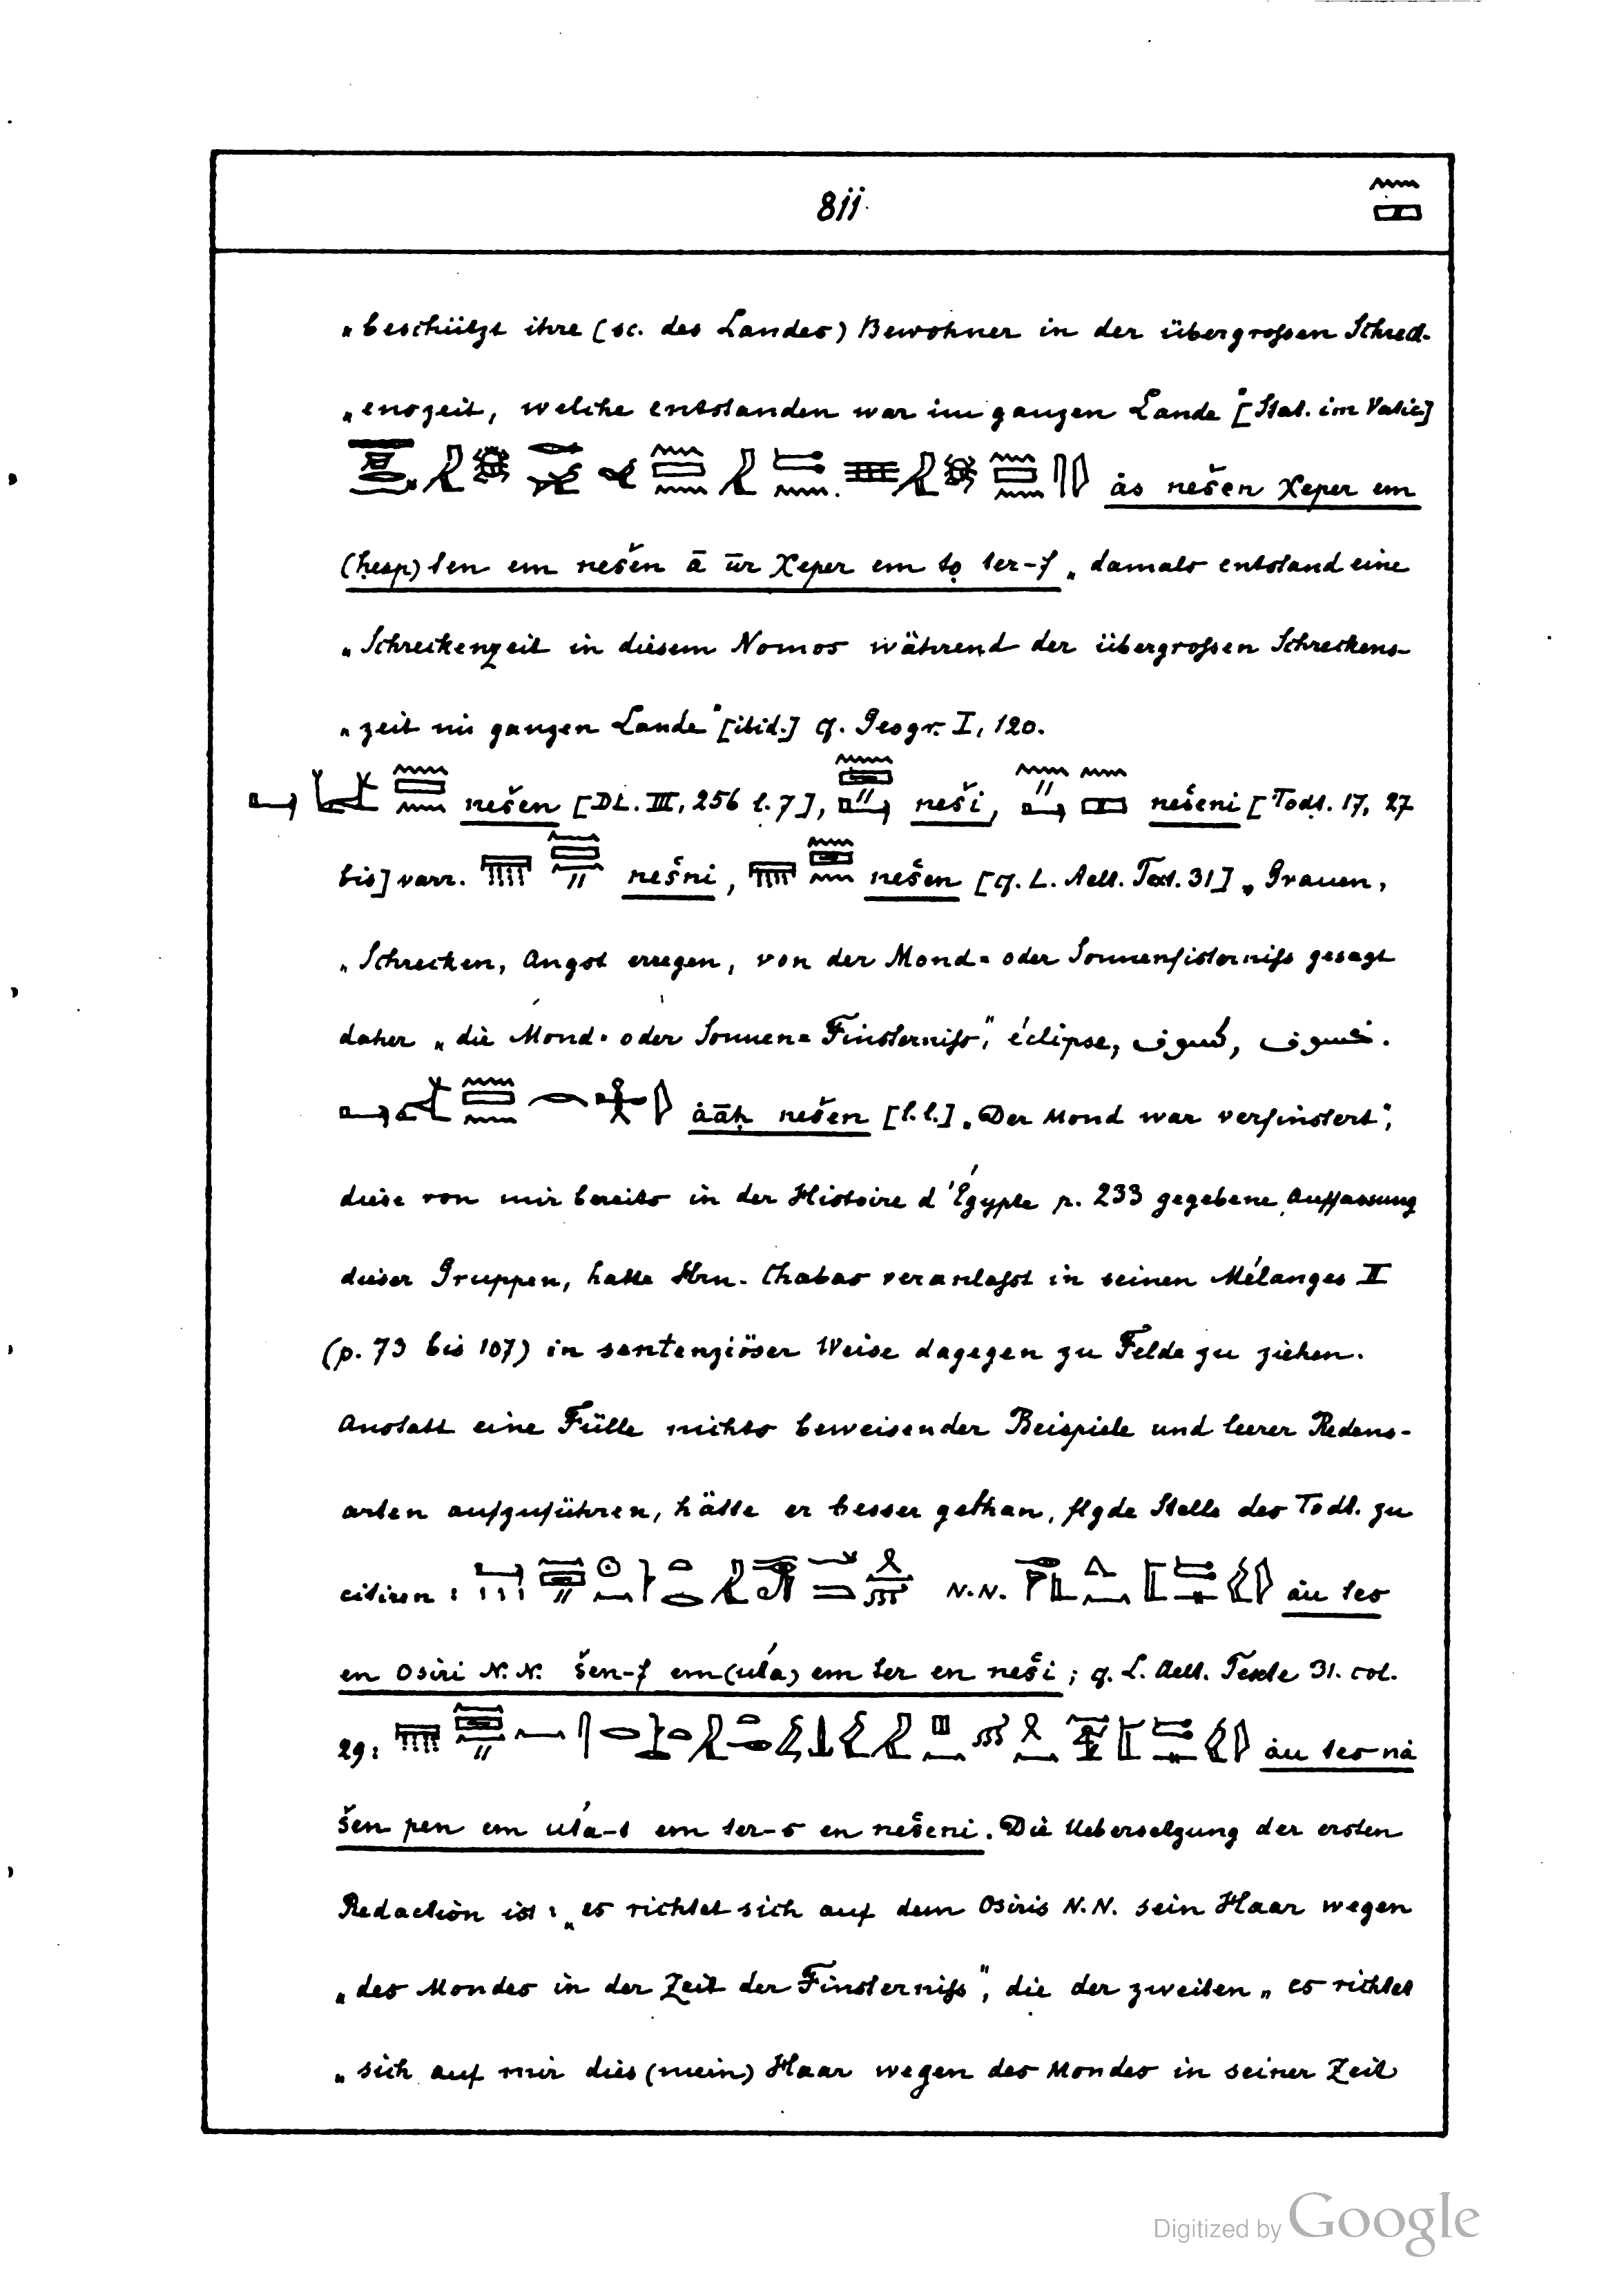 811.
„beschützt ihre (sc. des Landes) Bewohner in der übergrossen Schreck-
„enszeit, welche entstanden war im ganzen Lande" [Stat. im Vatic]
ȧs nešen χeper em
(ḥesp) ten em nešen ā ūr χeper em to ter-f „damals entstand eine
„Schreckenzeit in diesem Nomos während der übergrossen Schreckens-
„zeit im ganzen Lande" [ibid.] cf. Geogr. I, 120.
nešen [DL. III, 256 l. 7], neši, nešeni [Todt. 17, 27
bis] varr. nešni, nešen [cf. L. Aelt. Text. 31] „Grauen,
„Schrecken, Angst erregen, von der Mond- oder Sonnenfisterniss gesagt
daher „die Mond- oder Sonnen-Finsterniss", éclipse, كسوف, خسوف.
ȧāḥ nešen [l.l.] „Der Mond war verfinstert",
diese von mir bereits in der Histoire d'Égypte p. 233 gegebene Auffassung
dieser Gruppen, hatte Hrn. Chabas veranlasst in seinen Mélanges II
(p. 73 bis 107) in sentenziöser Weise dagegen zu Felde zu ziehen.
Anstatt eine Fülle nichts beweisender Beispiele und leerer Redens-
arten aufzuführen, hätte er besser gethan, flgde Stelle des Todt. zu
citiren: N.N. ȧu tes
en Osiri N.N. šen-f em (ut́a) em ter en neši; cf. L. Aelt. Texte 31. col.
29: ȧu tes-nȧ
šen pen em ut́a-t em ter-s en nešeni. Die Uebersetzung der ersten
Redaction ist: „es richtet sich auf dem Osiris N.N. sein Haar wegen
„des Mondes in der Zeit der Finsterniss", die der zweiten „es richtet
„sich auf mir dies (mein) Haar wegen des Mondes in seiner Zeit
Digitized by Google